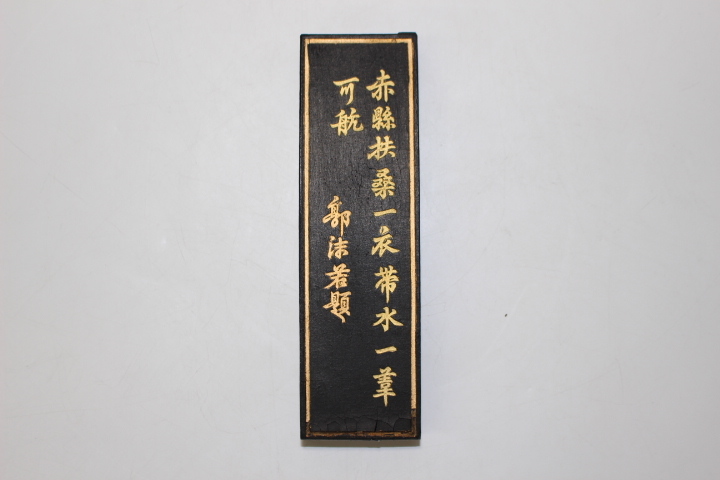 赤縣扶桑一衣帶水一葦
可航
郭沫若題